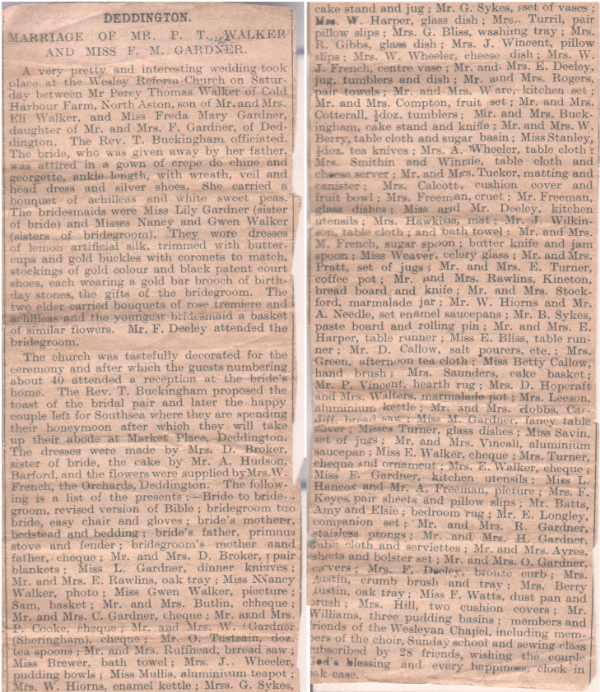 DEDDINGTON.
MARRIAGE OF MR. P. T. WALKER
AND MISS F. M. GARDNER.
A very pretty and interesting wedding took
place at the Wesley Reform Church on Satur-
day between Mr Percy Thomas Walker of Cold
Harbour Farm, North Aston, son of Mr. and Mrs.
Eli Walker, and Miss Freda Mary Gardner,
daughter of Mr. and Mrs. F. Gardner, of Ded-
dington. The Rev. T. Buckingham officiated.
The bride, who was given away by her father,
was attired in a gown of crepe de chine and
georgette, ankle length, with wreath, veil and
head dress and silver shoes. She carried a
bouquet of achilleas and white sweet peas.
The bridesmaids were Miss Lily Gardner (sister
of bride) and Misses Nancy and Gwen Walker
(sisters of bridegroom). They wore dresses
of lemon artificial silk, trimmed with butter-
cups and gold buckles with coronets to match,
stockings of gold colour and black patent court
shoes, each wearing a gold bar brooch of birth-
day stones, the gifts of the bridegroom. The
two elder carried bouquets of rose tremiere and
achilleas and the youngest bridesmaid a basket
of similar flowers. Mr. F. Deeley attended the
bridegroom.
The church was tastefully decorated for the
ceremony and after which the guests numbering
about 40 attended a reception at the bride's
home. The Rev. T. Buckingham proposed the
toast of the bridal pair and later the happy
couple left for Southsea where they are spending
their honeymoon after which they will take
up their abode at Market Place, Deddington.
The dresses were made by Mrs. D. Broker,
sister of bride, the cake by Mr. A. Hudson,
Barford, and the flowers were supplied by Mrs. W.
French, the Orchards, Deddington. The follow-
ing is a list of the presents :—Bride to bride-
groom, revised version of Bible ; bridegroom to
bride, easy chair and gloves ; bride's mother,
bedstead and bedding ; bride's father, primus
stove and fender ; bridegroom's mother and
father, cheque ; Mr. and Mrs. D. Broker, pair
blankets ; Miss L. Gardner, dinner knives ;
Mr. and Mrs. E. Rawlins, oak tray ; Miss Nancy
Walker, photo ; Miss Gwen Walker, picture ;
Sam, basket ; Mr. and Mrs. Butlin, cheque ;
Mr. and Mrs. C. Gardner, cheque ; Mr. and Mrs.
P. Cooke, cheque ; Mr. and Mrs. W. Gardner
(Sheringham), cheque ; Mr. O. Tustain, doz.
tea spoons ; Mr. and Mrs. Ruffhead, bread saw ;
Miss Brewer, bath towel ; Mrs. J. Wheeler,
pudding bowls ; Miss Mullis, aluminium teapot ;
Mrs. W. Hiorns, enamel kettle ; Mrs. G. Sykes,
cake stand and jug ; Mr. G. Sykes, set of vases ;
Mrs. W. Harper, glass dish ; Mrs. Turril, pair
pillow slips ; Mrs. G. Bliss, washing tray ; Mrs.
R. Gibbs, glass dish ; Mrs. J. Wincent, pillow
slips ; Mrs. W. Wheeler, cheese dish ; Mrs. W.
J. French, centre vase ; Mr. and Mrs. E. Deeley,
jug, tumblers and dish ; Mr. and Mrs. Rogers,
pair towels ; Mr. and Mrs. Ware, kitchen set ;
Mr. and Mrs. Compton, fruit set ; Mr. and Mrs.
Cotterall, ½doz. tumblers ; Mr. and Mrs. Buck-
ingham, cake stand and knife ; Mr. and Mrs. W.
Berry, table cloth and sugar basin ; Miss Stanley,
½doz. tea knives ; Mrs. A. Wheeler, table cloth ;
Mrs. Smithin and Winnie, table cloth and
cheese server ; Mr. and Mrs. Tucker, matting and
canister ; Mrs. Calcott, cushion cover and
fruit bowl ; Mrs. Freeman, cruet ; Mr. Freeman,
glass dishes ; Miss and Mr. Deeley, kitchen
utensils ; Mrs. Hawkins, mat ; Mr. J. Wilkin-
son, table cloth ; and bath towel ; Mr. and Mrs.
M. French, sugar spoon ; butter knife and jam
spoon ; Miss Weaver, celery glass ; Mr. and Mrs.
Pratt, set of jugs ; Mr. and Mrs. E. Turner,
coffee pot ; Mr. and Mrs. Rawlins, Kineton,
bread board and knife ; Mr. and Mrs. Stock-
ford, marmalade jar ; Mr. W. Hiorns and Mr.
A. Needle, set enamel saucepans ; Mr. B. Sykes,
paste board and rolling pin ; Mr. and Mrs. E.
Harper, table runner ; Miss E. Bliss, table run-
ner ; Mr. D. Callow, salt pourers, etc. ; Mrs.
Green, afternoon tea cloth ; Miss Betty Callow,
hand brush ; Mrs. Saunders, cake basket ;
Mr. P. Vincent, hearth rug ; Mrs. D. Hopcraft
and Mrs. Walters, marmalade pot ; Mrs. Leeson,
aluminium kettle ; Mr. and Mrs. Hobbs, Car-
diff, bread saw ; Miss M. Gardner, fancy table
cover ; Misses Turner, glass dishes ; Miss Savin,
set of jugs ; Mr. and Mrs. Vincall, aluminium
saucepan ; Miss E. Walker, cheque ; Mrs. Turner,
cheque and ornament ; Mrs. E. Walker, cheque ;
Miss F. Gardner, kitchen utensils ; Miss L.
Hancox and Mr. A. Freeman, picture ; Mrs. F.
Keyes, pair sheets and pillow slips ; Mr. Batts,
Amy and Elsie ; bedroom rug ; Mr. E. Longley,
companion set ; Mr. and Mrs. R. Gardner,
stainless prongs ; Mr. and Mrs. H. Gardner,
table cloth and serviettes ; Mr. and Mrs. Ayres,
sheets and bolster set ; Mr. and Mrs. O. Gardner,
servers ; Mrs. F. Deeley, bronze curb ; Mrs.
Austin, crumb brush and tray ; Mrs. Berry
Austin, oak tray ; Miss F. Watts, dust pan and
brush ; Mrs. Hill, two cushion covers ; Mr.
Williams, three pudding basins ; members and
friends of the Wesleyan Chapel, including mem-
bers of the choir, Sunday school and sewing class
subscribed by 28 friends, wishing the couple
God's blessing and every happiness, clock in
oak case.